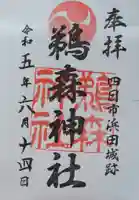 奉拝
四日市浜田城跡
鵜森神社
鵜森
神社
令和五年六月十四日